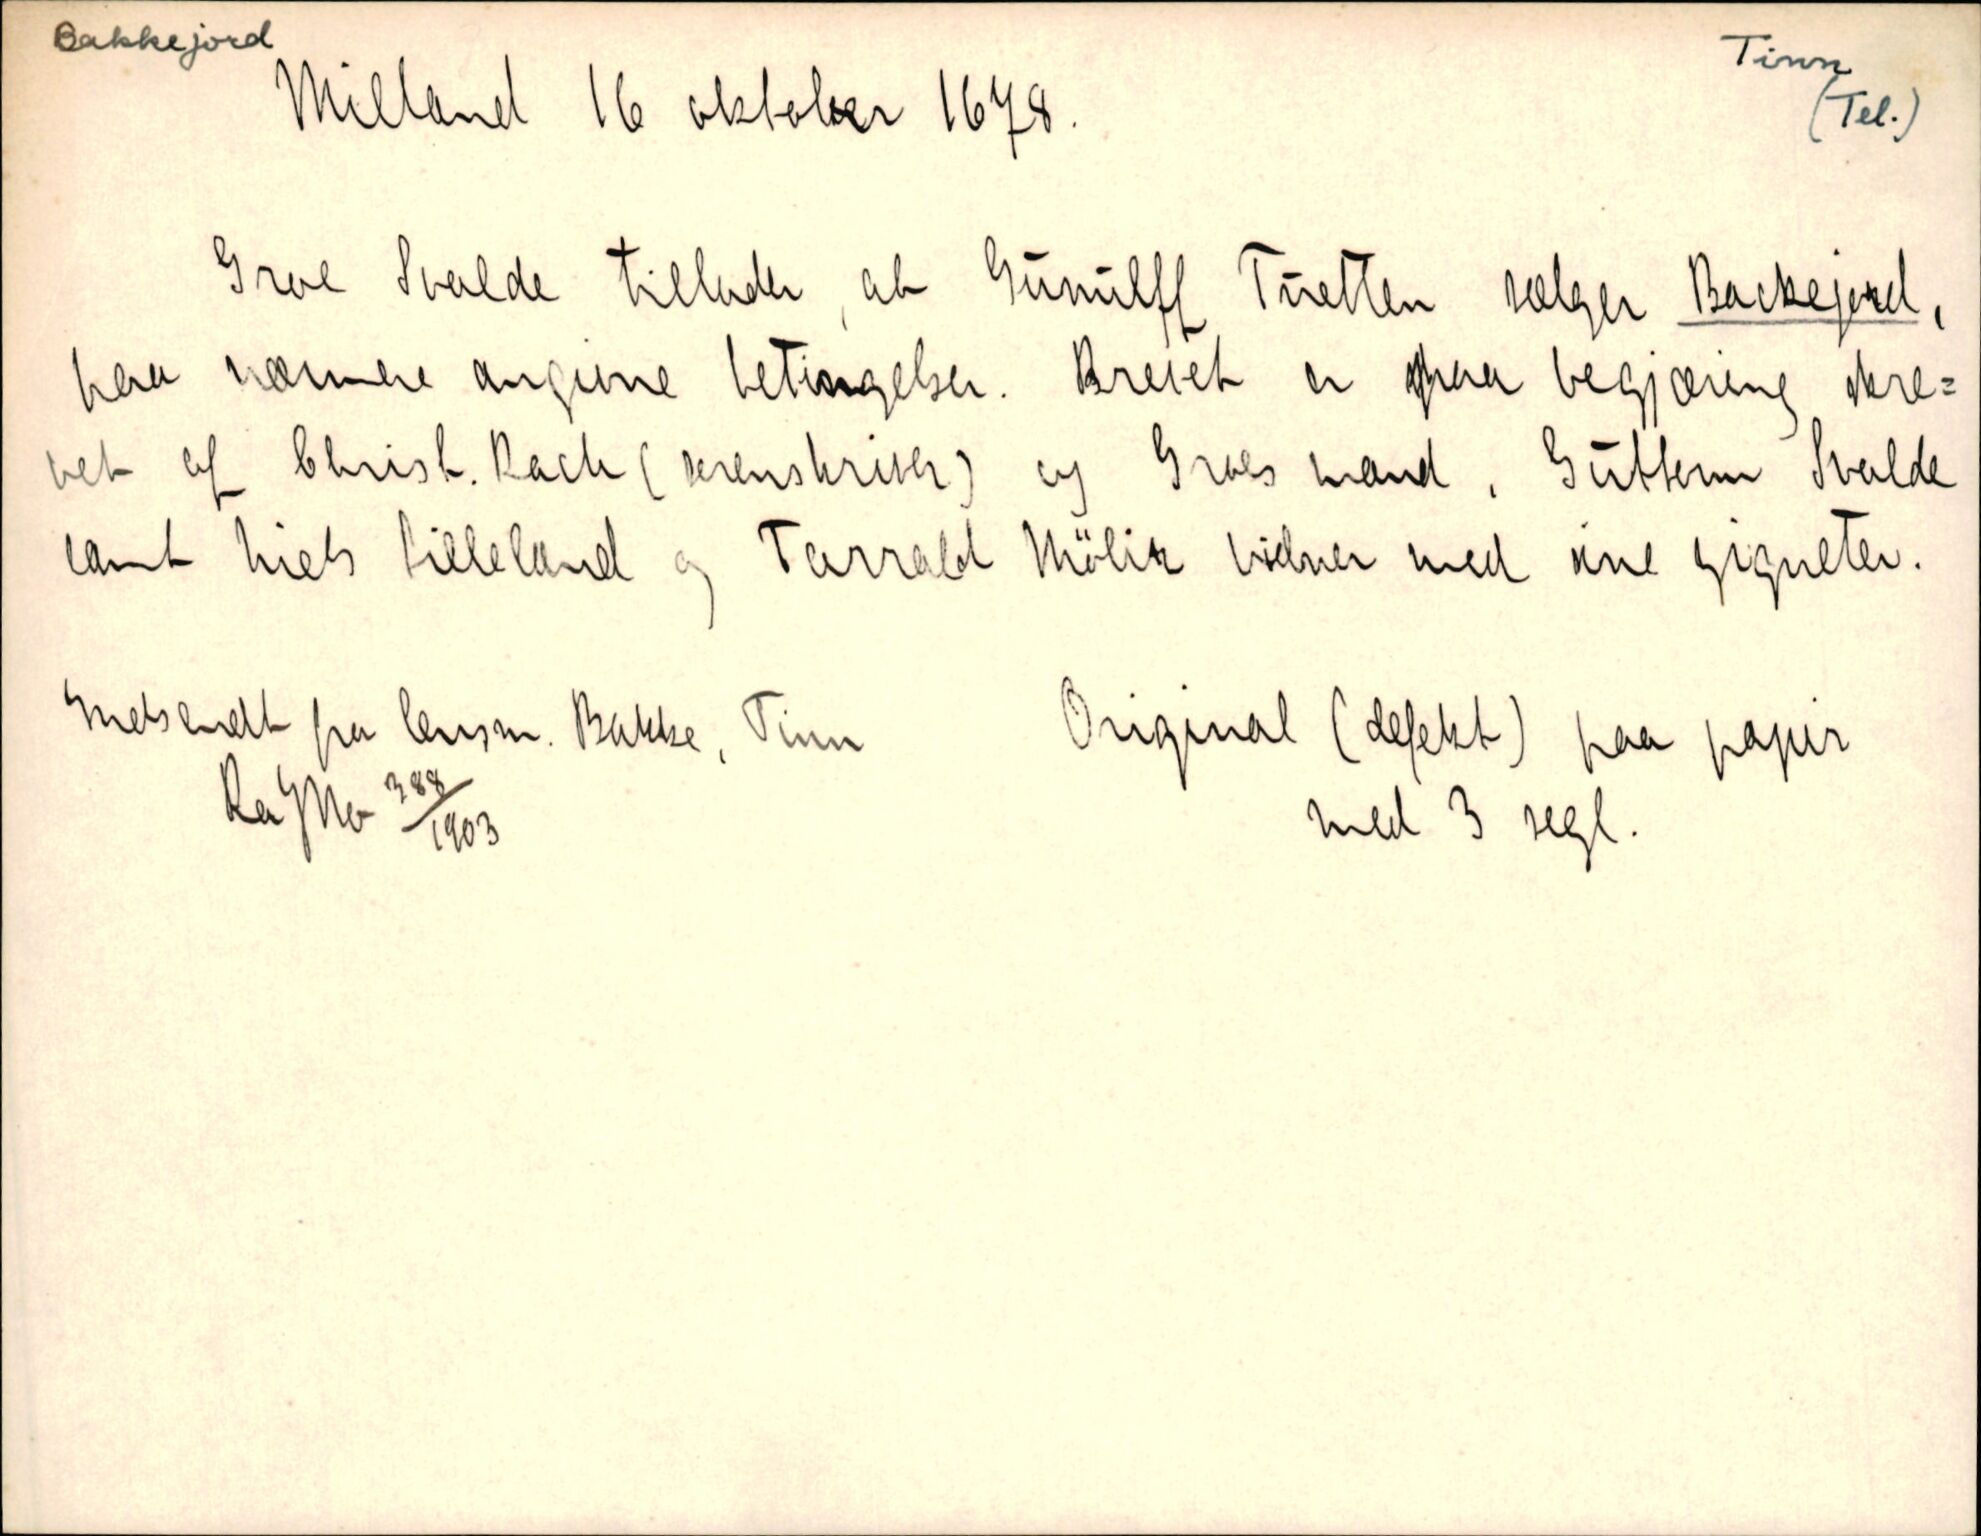 Bakkejord
Tinn
(Tel.)
Milland 16 oktober 1678.
Groe Svalde tillader, at Gunulff Tuetten sælger Backejord,
paa nærmere angivne betingelser. Brevet er paa begjæring skre=
vet af Christ. Rach (sorenskriver) og Groes mand, Guttorm Svalde
samt Niels Lilleland og Tarrald Mölir vidner med sine signeter.
Indsendt fra lensm. Bakke, Tinn
Ra JNo 388/1903
Original (defekt) paa papir
med 3 segl.